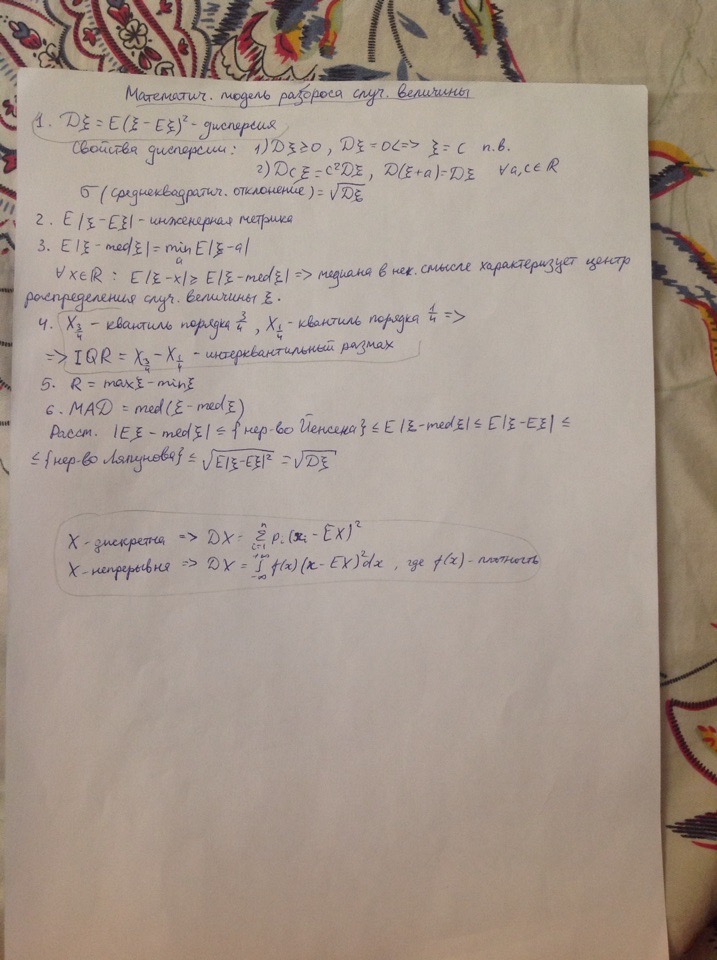 Математич. модель разброса случ. величины
1. Dξ = E(ξ - Eξ)² - дисперсия
Свойства дисперсии: 1) Dξ ≥ 0, Dξ = 0 <=> ξ = c п.в.
2) Dcξ = c²Dξ, D(ξ+a) = Dξ ∀a,c∈ℝ
σ (среднеквадратич. отклонение) = √Dξ
2. E|ξ - Eξ| - инженерная метрика
3. E|ξ - medξ| = min_a E|ξ - a|
∀x∈ℝ: E|ξ - x| ≥ E|ξ - medξ| => медиана в нек. смысле характеризует центр
распределения случ. величины ξ.
4. X_{3/4} - квантиль порядка 3/4, X_{1/4} - квантиль порядка 1/4 =>
=> IQR = X_{3/4} - X_{1/4} - интерквантильный размах
5. R = maxξ - minξ
6. MAD = med(ξ - medξ)
Расст. |Eξ - medξ| ≤ {нер-во Йенсена} ≤ E|ξ - medξ| ≤ E|ξ - Eξ| ≤
≤ {нер-во Ляпунова} ≤ √(E|ξ - Eξ|²) = √Dξ
X - дискретна => DX = Σ_{i=1}^{n} p_i (x_i - EX)²
X - непрерывна => DX = ∫_{-∞}^{+∞} f(x)(x - EX)²dx, где f(x) - плотность